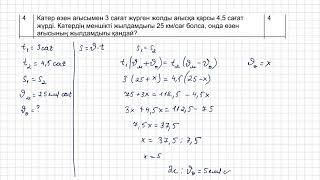 4 Катер өзен ағысымен 3 сағат жүрген жолды ағысқа қарсы 4,5 сағат 4
жүрді. Катердің меншікті жылдамдығы 25 км/сағ болса, онда өзен
ағысының жылдамдығы қандай?
t₁ = 3 сағ
t₂ = 4,5 сағ
S₁ = S₂
ϑₘ = 25 км/сағ
ϑₐ = ?
S = ϑ·t
S₁ = S₂
t₁(ϑₘ+ϑₐ) = t₂(ϑₘ-ϑₐ)
ϑₐ = x
3(25+x) = 4,5(25-x)
75+3x = 112,5 - 4,5x
3x+4,5x = 112,5-75
7,5x = 37,5
x = 37,5 : 7,5
x = 5